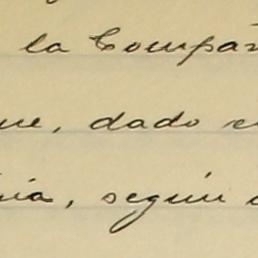 la Compañ
ue, dado e
ia, según